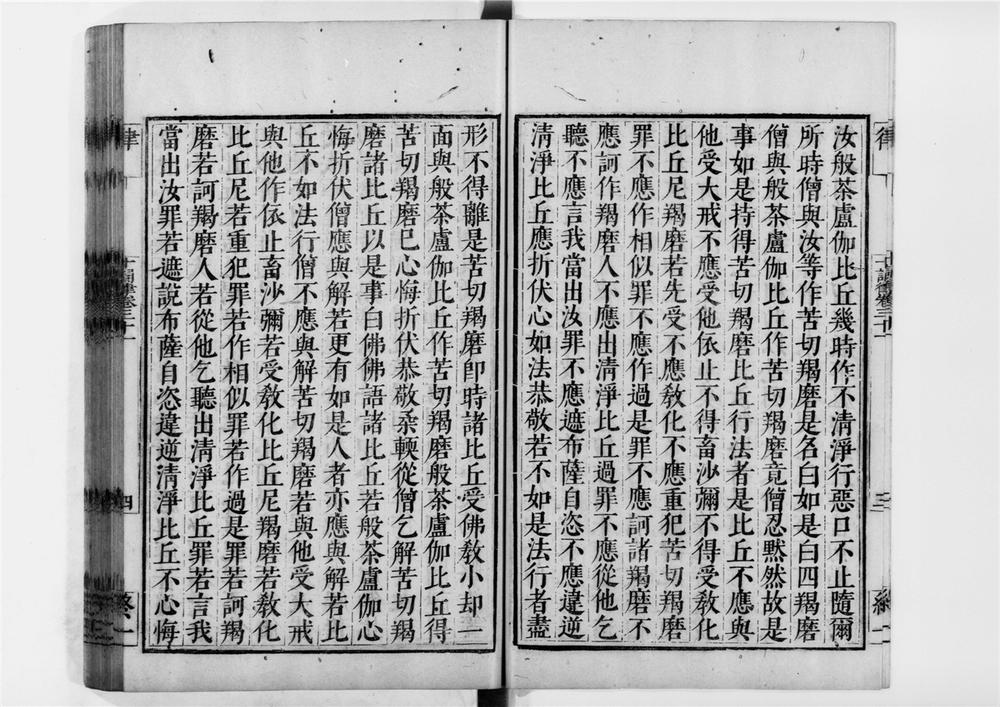 汝般茶盧伽比丘幾時作不清淨行惡口不止隨爾
所時僧與汝等作苦切羯磨是名白如是白四羯磨
僧與般茶盧伽比丘作苦切羯磨竟僧忍默然故是
事如是持得苦切羯磨比丘行法者是比丘不應與
他受大戒不應受他依止不得畜沙彌不得受教化
比丘尼羯磨若先受不應教化不應重犯苦切羯磨
罪不應作相似罪不應作過是罪不應訶諸羯磨不
應訶作羯磨人不應出清淨比丘過罪不應從他乞
聽不應言我當出汝罪不應遮布薩自恣不應違逆
清淨比丘應折伏心如法恭敬若不如是法行者盡
形不得離是苦切羯磨卽時諸比丘受佛教小却一
面與般茶盧伽比丘作苦切羯磨般茶盧伽比丘得
苦切羯磨巳心悔折伏恭敬柔輭從僧乞解苦切羯
磨諸比丘以是事白佛佛語諸比丘若般茶盧伽心
悔折伏僧應與解若更有如是人者亦應與解若比
丘不如法行僧不應與解苦切羯磨若與他受大戒
與他作依止畜沙彌若受敎化比丘尼羯磨若敎化
比丘尼若重犯罪若作相似罪若作過是罪若訶羯
磨若訶羯磨人若從他乞聽出清淨比丘罪若言我
當出汝罪若遮說布薩自恣違逆清淨比丘不心悔
律
四